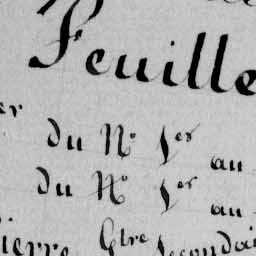 Feuille
er du N° 1er au
du N° 1er au
ierre Gbre Secondai